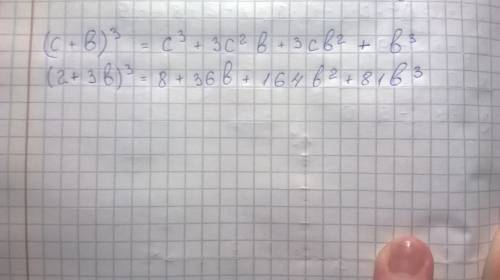 (c + b)³ = c³ + 3c² b + 3cb² + b³
(2 + 3b)³ = 8 + 36b + 164b² + 81b³